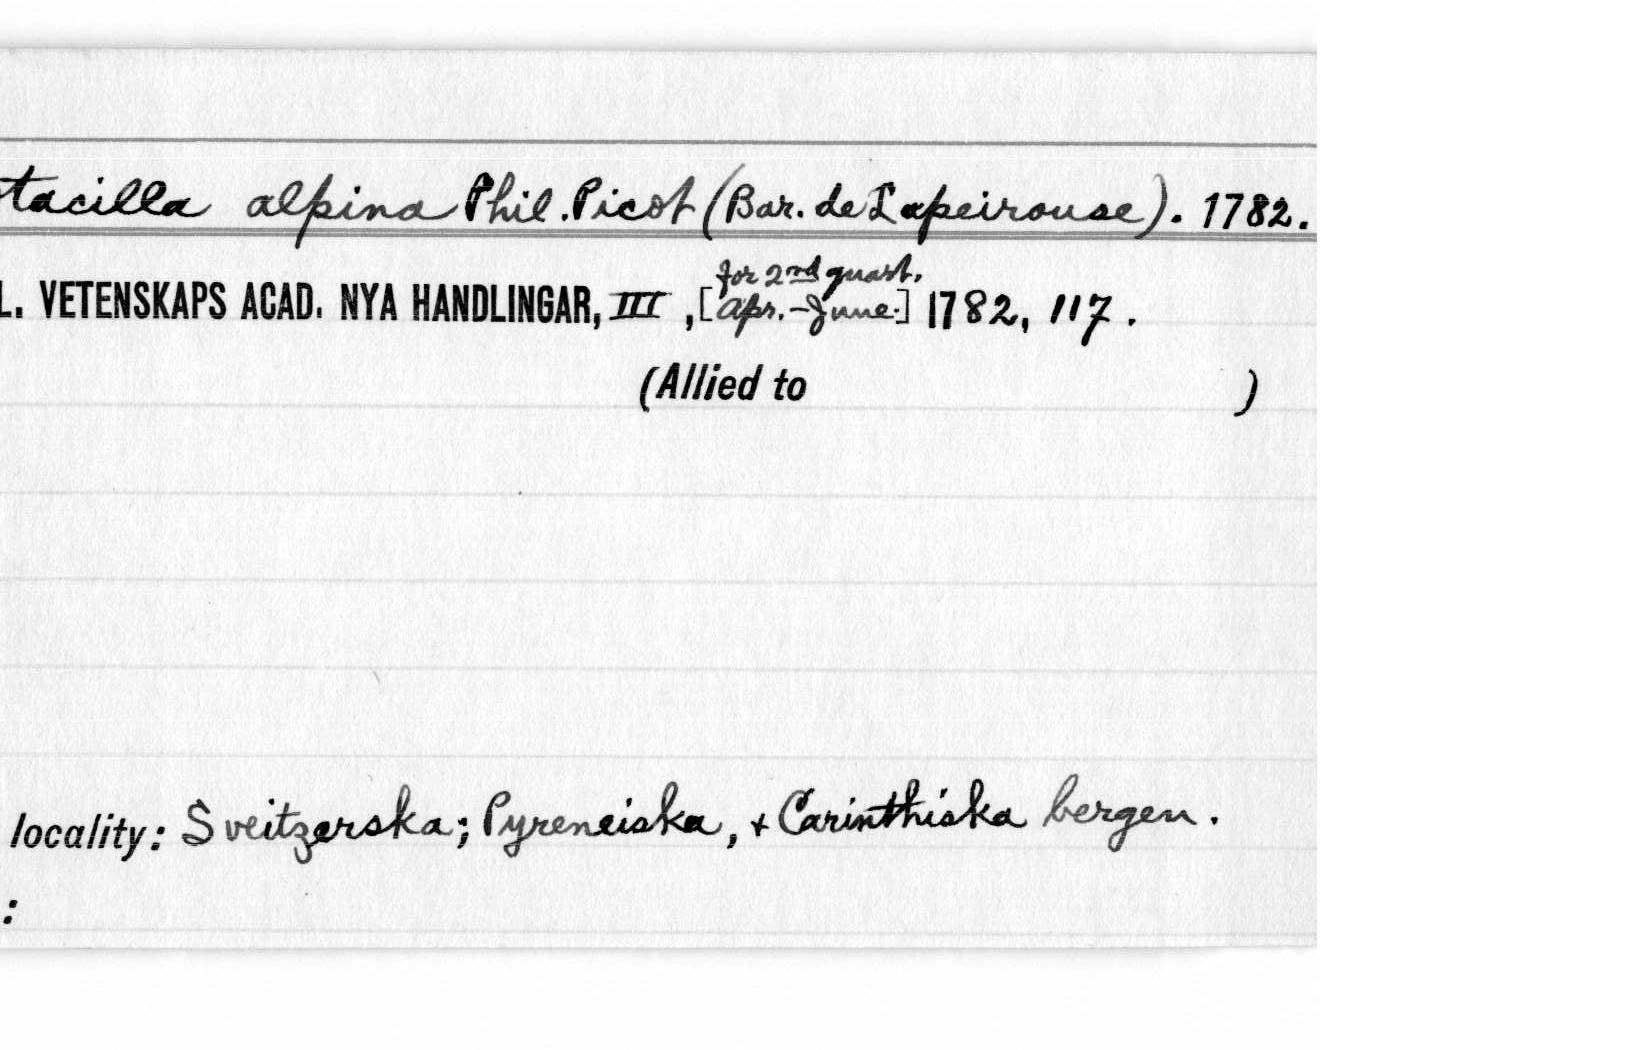 tacilla alpina Phil. Picot (Bar. de Lapeirouse). 1782.
for 2nd quart.
L. VETENSKAPS ACAD. NYA HANDLINGAR, III, [Apr.-June.] 1782, 117.
(Allied to )
locality: Sveitzerska; Pyreneiska, + Carinthiska bergen.
: